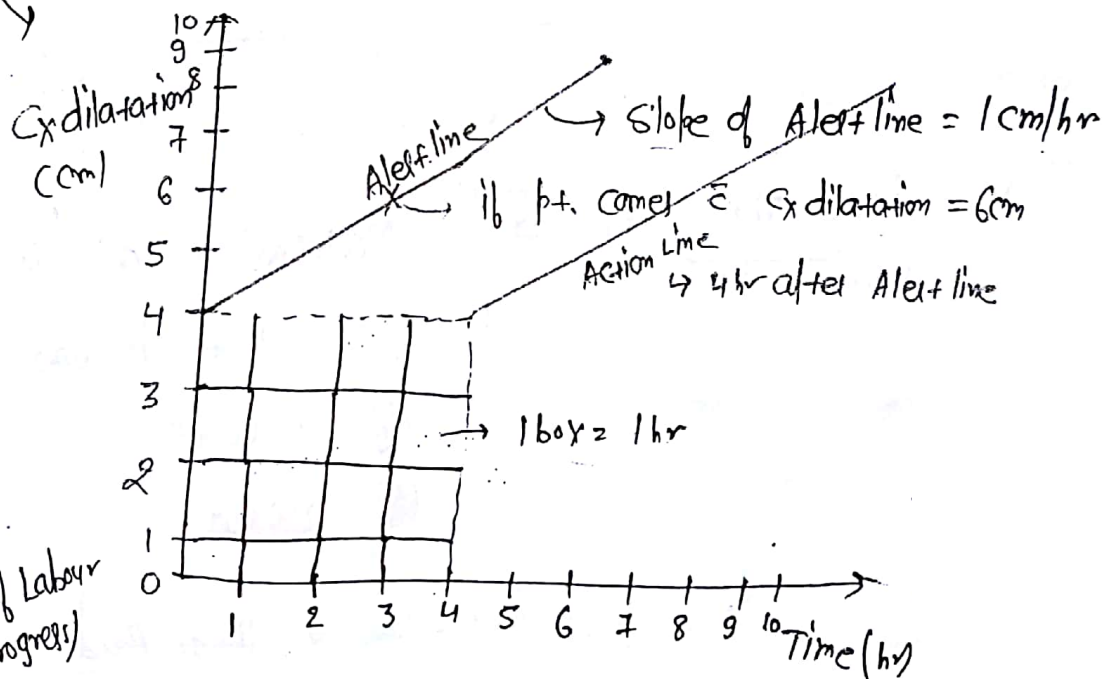 10
9
8
Cx dilatation
(cm)
7
6
5
4
3
2
1
0
Alert line
Slope of Alert line = 1 cm/hr
if pt. comes c̄ Cx dilatation = 6cm
Action Line
↳ 4hr after Alert line
→ 1 box = 1 hr
Labour
1 2 3 4 5 6 7 8 9 10
Time (hr)